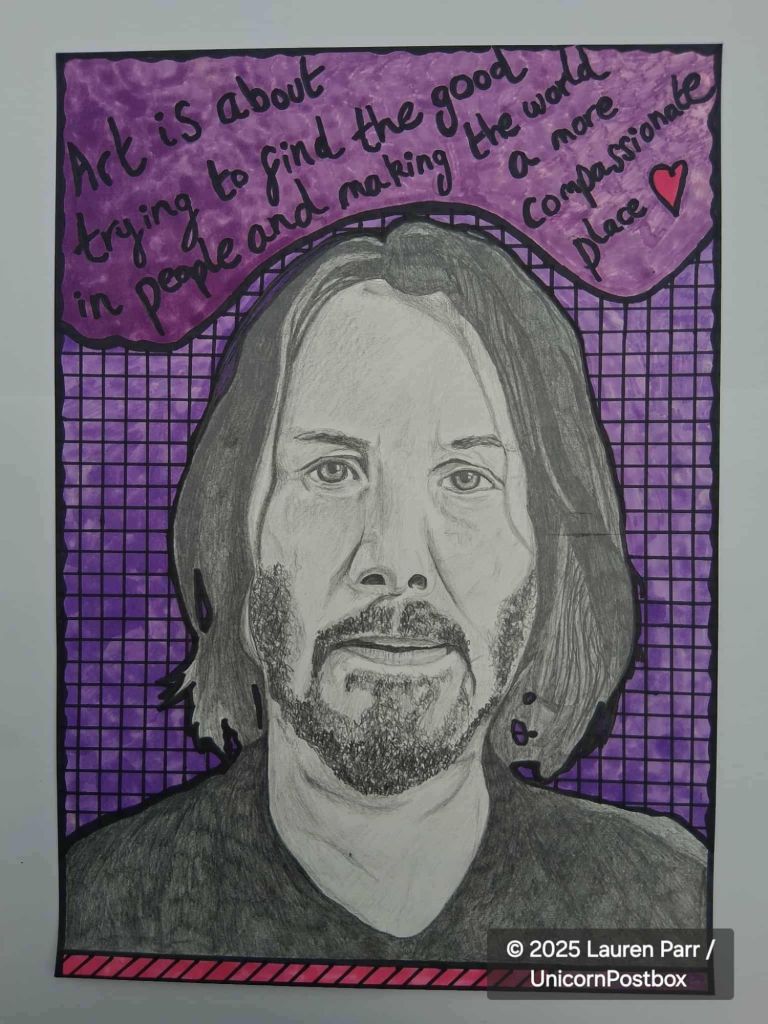 Art is about
trying to find the good
in people and making the world
a more
compassionate
place
© 2025 Lauren Parr /
UnicornPostbox